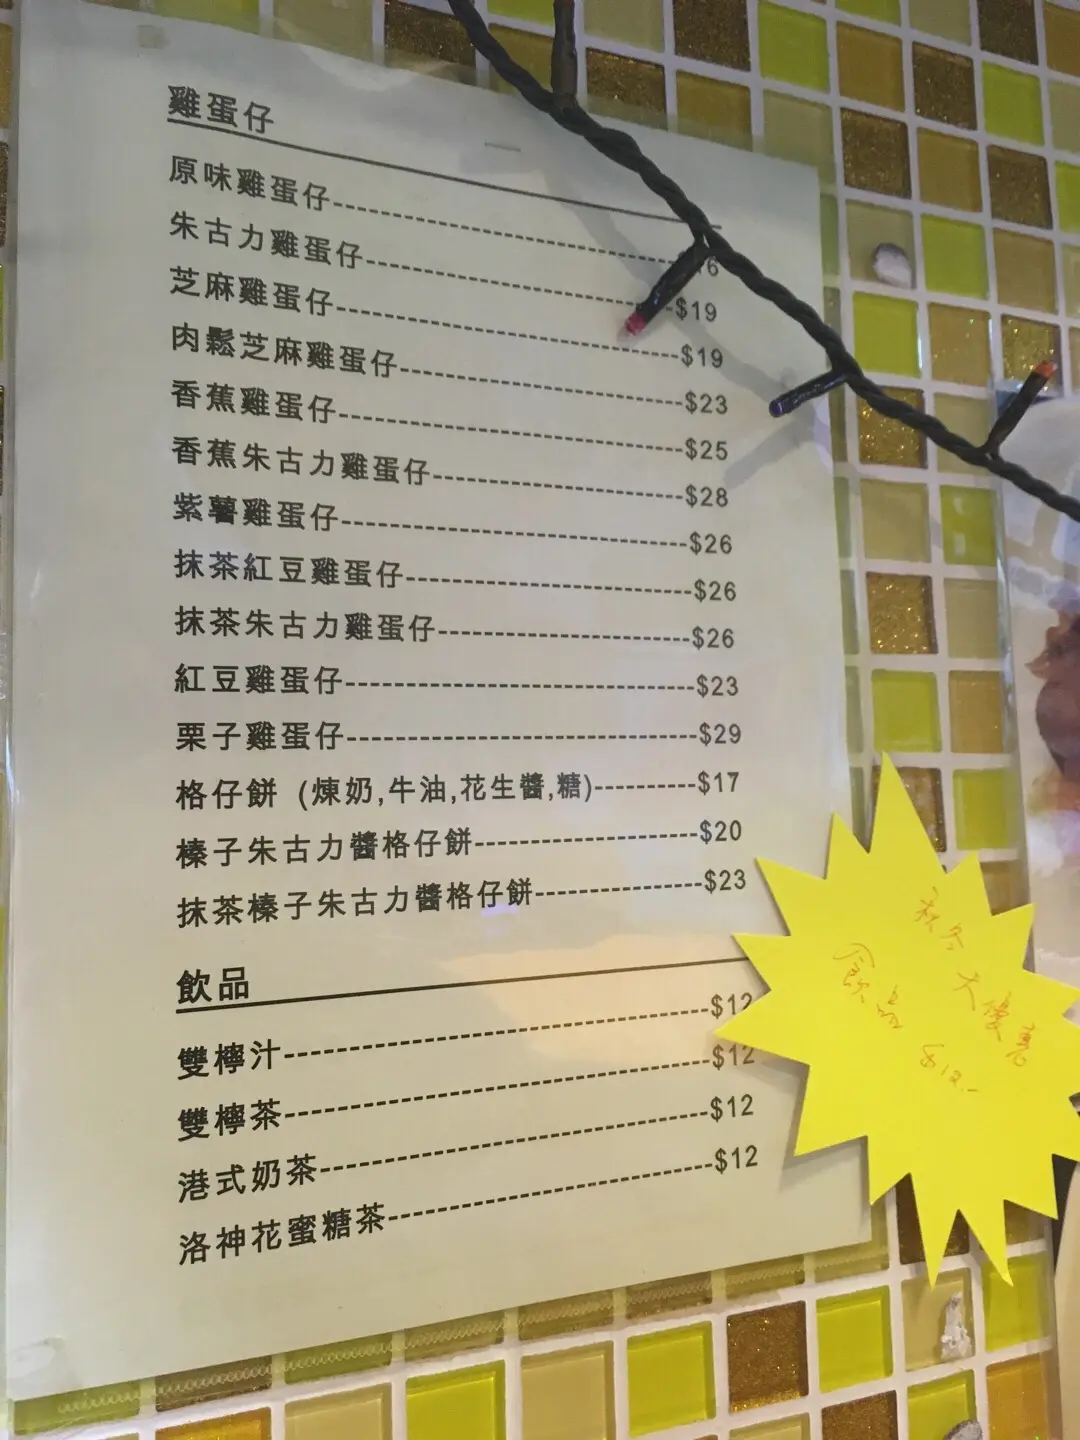 雞蛋仔
原味雞蛋仔--------------------------------16
朱古力雞蛋仔-----------------------------$19
芝麻雞蛋仔--------------------------------$19
肉鬆芝麻雞蛋仔--------------------------$23
香蕉雞蛋仔--------------------------------$25
香蕉朱古力雞蛋仔-----------------------$28
紫薯雞蛋仔--------------------------------$26
抹茶紅豆雞蛋仔--------------------------$26
抹茶朱古力雞蛋仔-----------------------$26
紅豆雞蛋仔--------------------------------$23
栗子雞蛋仔--------------------------------$29
格仔餅 (煉奶,牛油,花生醬,糖)----------$17
榛子朱古力醬格仔餅--------------------$20
抹茶榛子朱古力醬格仔餅---------------$23
飲品
雙檸汁--------------------------------------$12
雙檸茶--------------------------------------$12
港式奶茶-----------------------------------$12
洛神花蜜糖茶-----------------------------$12
秋冬
大優惠
飲品
$12.-